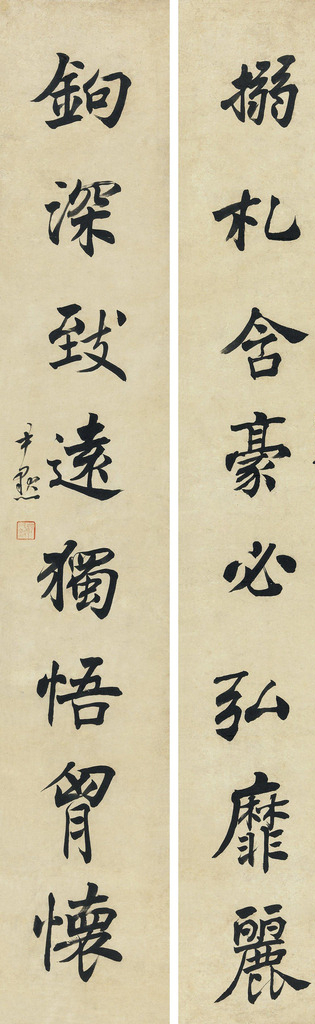 搦札含豪必弘靡麗
鉤深致遠獨悟胷懷
尹默